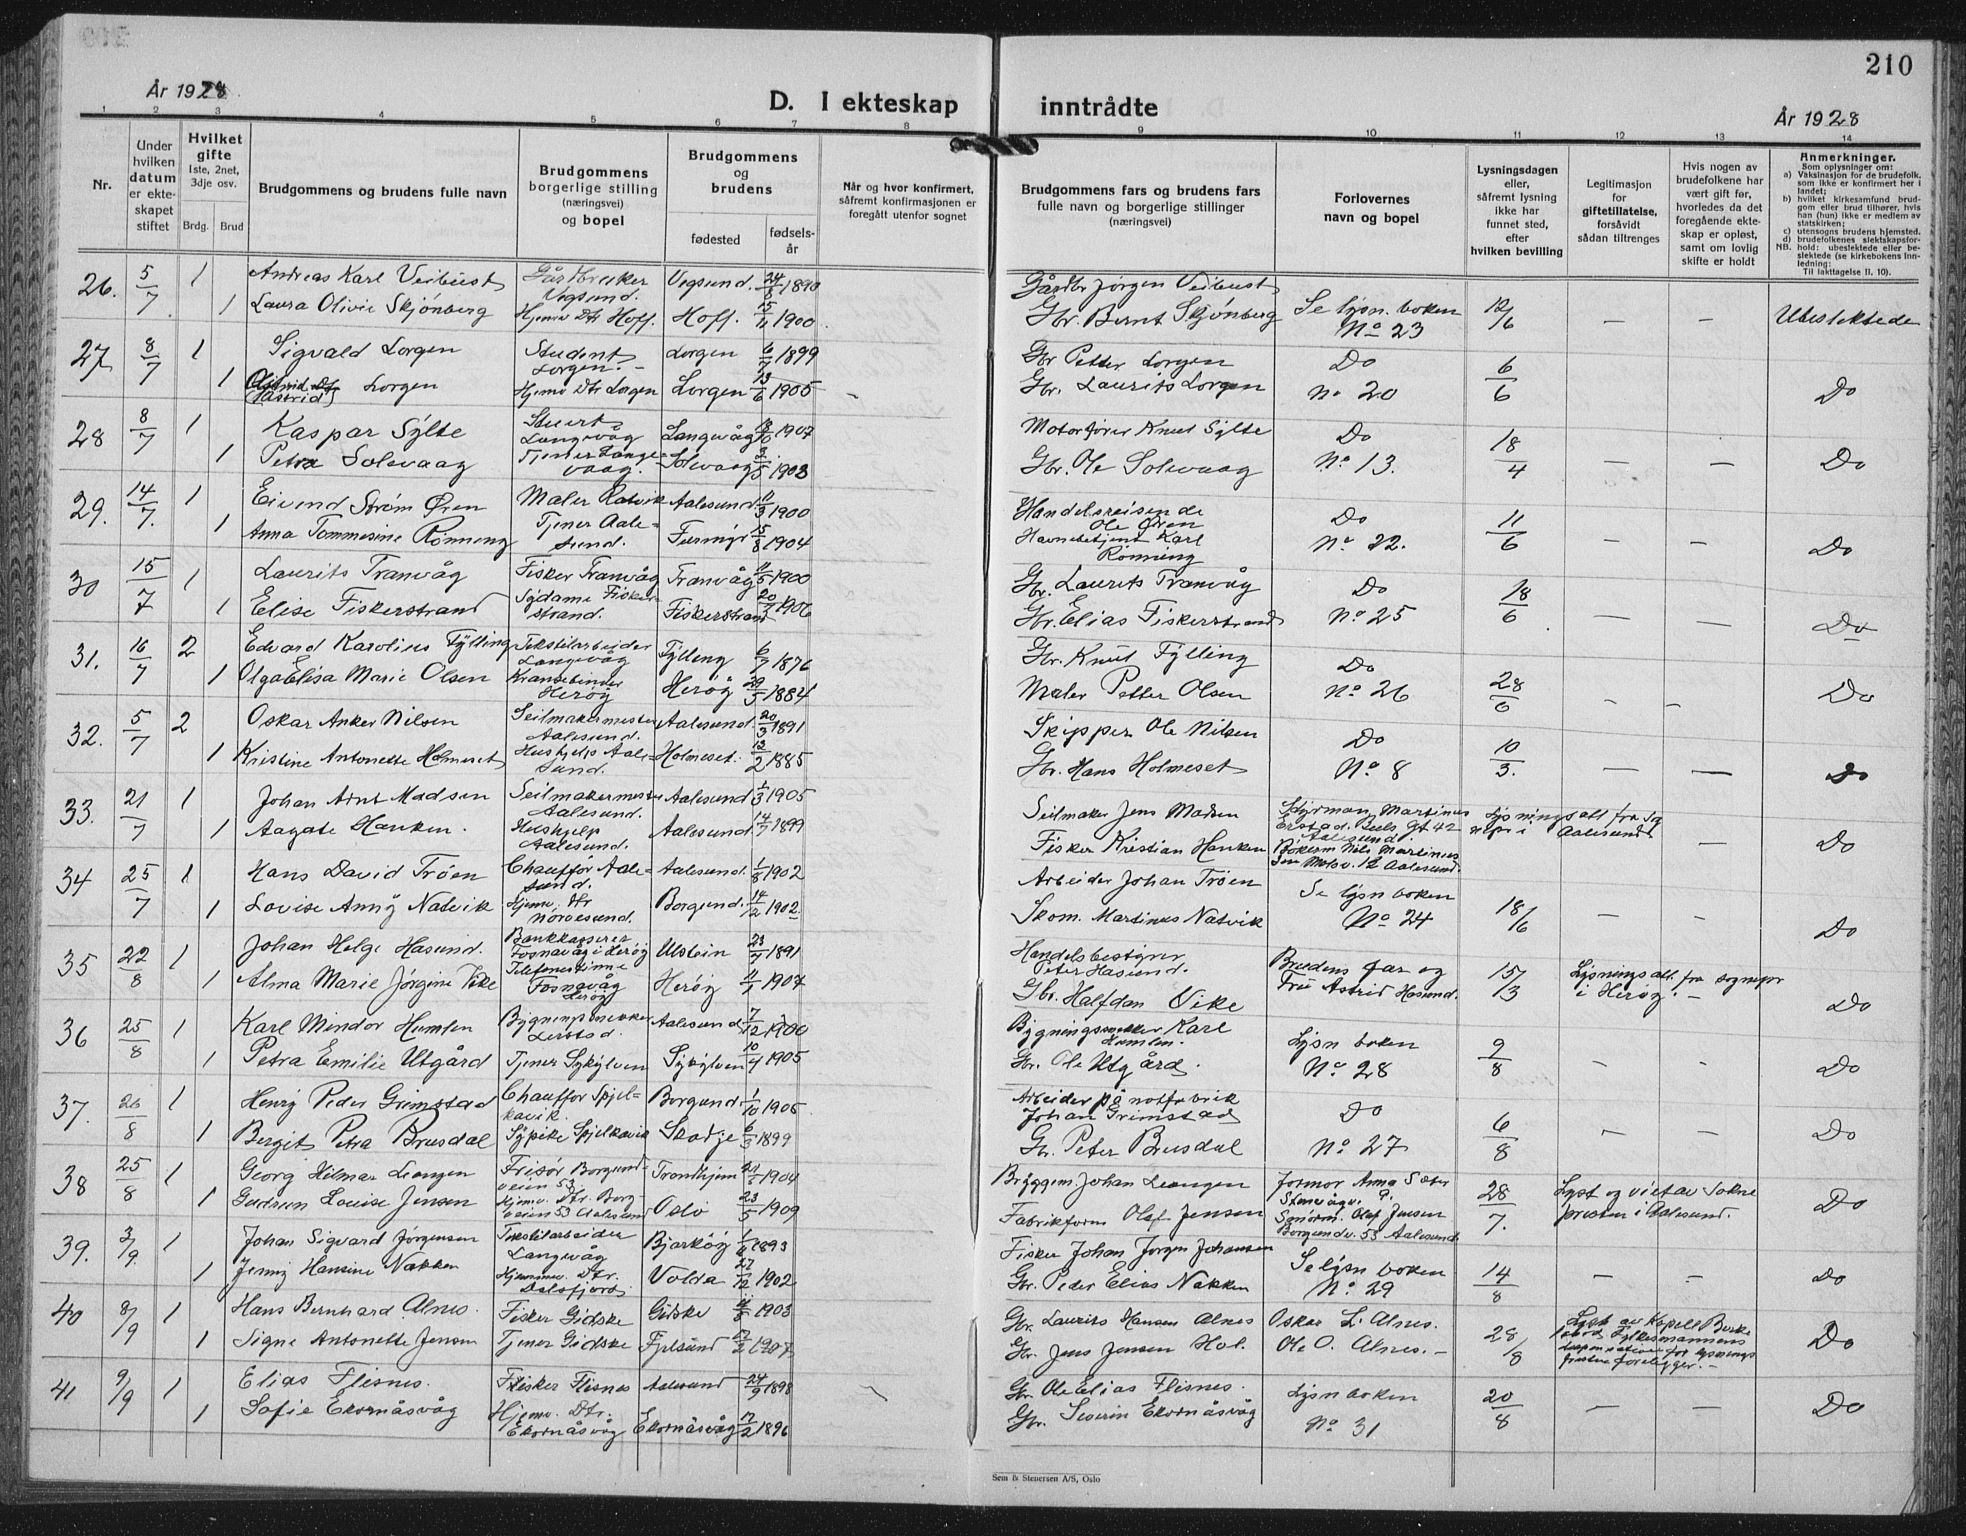 210
År 1928
D. I ekteskap inntrådte
År 1928
1 2 3 4 5 6 7 8 9 10 11 12 13 14
Nr.
Under hvilken datum er ekteskapet stiftet
Hvilket gifte 1ste, 2net, 3dje osv.
Brdg. Brud
Brudgommens og brudens fulle navn
Brudgommens borgerlige stilling (næringsvei) og bopel
Brudgommens og brudens
fødested
fødselsår
Når og hvor konfirmert, såfremt konfirmasjonen er foregått utenfor sognet
Brudgommens fars og brudens fars fulle navn og borgerlige stillinger (næringsvei)
Forlovernes navn og bopel
Lysningsdagen eller, såfremt lysning ikke har funnet sted, efter hvilken bevilling
Legitimasjon for giftetillatelse, forsåvidt sådan tiltrenges
Hvis nogen av brudefolkene har vært gift før, hvorledes da det foregående ekteskap er opløst, samt om lovlig skifte er holdt
Anmerkninger.
Som oplysninger om:
a) Vaksinasjon for de brudefolk, som ikke er konfirmert her i landet;
b) hvilket kirkesamfund brudgom eller brud tilhører, hvis han (hun) ikke er medlem av statskirken;
c) utensogns brudens hjemsted.
d) brudefolkenes slektskapsforhold: ubeslektede eller beslektede (se kirkebokens Innledning:
NB. Til iakttagelse II, 10).
26. 5/7 1 Andreas Karl Veibust Gårdbruker Vegsund. Vegsund. 24/8 1890 Gårdbr Jørgen Veibust Se lysn. boken No 23 12/6 — — Ubeslektede
1 Laura Olivie Skjønberg Hjemv Dtr Hoff. Hoff. 15/11 1900. Gbr. Bernt Skjønberg
27 8/7 1 Sigvald Lorgen Student Lorgen. Lorgen 6/7 1899 Gbr Petter Lorgen Do No 20 6/6 Do
1 (Astrid) Lorgen Hjemv Dtr Lorgen Lorgen 13/6 1905 Gbr. Laurits Lorgen
28 8/7 1 Kaspar Sylte Stuert Langevåg Langevåg 1907 Motorfører Knut Sylte Do No 13. 18/4 — — Do
1 Petra Solevaag Tjener Langevaag. Solevaag 1903 Gbr. Ole Solevaag
29. 14/7. 1 Eivind Strøm Øren Maler Ratvik Aalesund 1/3 1900 Handelsreisende Ole Øren Do No 22. 11/6 — — Do
1 Anna Tommesine Rønneng Tjener Aalesund. 15/8 1904 Havnebetjent Karl Rønning
30 15/7 1 Laurits Tranvåg Fisker Tranvåg Tranvåg 11/5 1900 Gbr. Laurits Tranvåg Do No 25 18/6 — — Do
1 Elise Fiskerstrand Sydame Fiskerstrand. Fiskerstrand 1906 Gbr. Elias Fiskerstrand
31. 16/7 2 Edvard Karolius Tylling Tekstilarbeider Langevåg Tylling 6/7 1876 Gbr. Knut Tylling Do No 26 28/6 - - Do
1 Olga Elisa Marie Olsen Kransebinder Herøy Herøy 29/5 1884 Maler Petter Olsen
32. 5/7 2 Oskar Anker Nilsen Seilmakermester Aalesund Aalesund. 20/3 1891 Skipper Ole Nilsen Do No 8 10/3. — — Do
1 Kristine Antonette Holmeset Hushjelp Aalesund. Holmeset. 12/2 1885 Gbr. Hans Holmeset
33. 21/7 1 Johan Arnt Madsen Seilmakermester Aalesund. Aalesund 1/3 1905 Seilmaker Jens Madsen Styrman Martinus Erstad. Aalesund. Lysningsatt fra i Aalesund. — Do
1 Aagate Hanken. Hushjelp Aalesund. Aalesund 14/7 1899 Fisker Kristian Hanken Nils Martinus 12 Aalesund.
34 25/7 1 Hans David Trøen Chauffør Aalesund. Aalesund. 1/8 1902 Arbeider Johan Trøen Se lysn boken No 24 18/6 - - Do
1 Lovise Anny Natvik Hjemv. Dtr Nørvesund. Borgund. 14/12 1902. Skom. Martinus Natvik
35 22/8 1 Johan Helge Hasund. Bankkasserer Fosnavåg i Herøy Ulstein 23/7 1891 Handelsbestyrer Peter Hasund. Brudens far og Fru Astrid Hasund. 15/3 Lysningsatt. fra sognepr i Herøy. — Do
1 Alma Marie Jørgine Vike Telefonistinne Fosnavåg Herøy Herøy 11/1 1907 Gbr. Halfdan Vike
36 25/8 1 Karl Mindor Humlen Bygningssnekker Lerstad. Aalesund 7/12 1900 Bygningssnekker Karl Humlen. Lysn boken No 28 9/8 - - Do
1 Petra Emilie Utgård Tjener Sykylven Sykylven 10/4 1905 Gbr. Ole Utgård.
37. 26/8 1 Henry Peder Grimstad Chauffør Spjelkavik. Borgund 1/10 1905 Arbeider på notfabrik Johan Grimstad Do No 27 6/8 — — Do
1 Bergit Petra Brusdal Sypike Spjelkavik Skodje 6/3 1899 Gr. Peter Brusdal
38 25/8 1 Georg Hilmar Liangen Frisør Borgundveien 53. Trondhjem 1904 Bryggem. Johan Liangen Formor Anna Sæter 28/7. Lyst og viet av Soknepresten i Aalesund. Do
1 Gudrun Louise Jensen Hjemv. Dtr. Borgveien 53 Aalesund Oslo 23/5 1909 Fabrikform Olaf Jensen Olaf Jensen Borgundv. 53 Aalesund.
39. 3/9. 1 Johan Sigvard Jørgensen Tekstilarbeider Langevåg Bjarkøy 1893 Fisker Johan Jørgen Johansen Se lysn boken No 29 14/8 - - Do
1 Jenny Hansine Nakken Hjemmev. Dtr. Dalsfjord Volda 27/12 1902 Gbr. Peder Elias Nakken
40 8/9 1 Hans Bernhard Alnes. Fisker Gidske Giske 1903 Gbr. Laurits Hansen Alnes Oskar L. Alnes. 28/8 Lyst av Kapell Fylkesmannens dispensation for lysnings foreligger. — Do
1 Signe Antonette Jensen Tjener Gidske 12/2 1907 Gbr. Jens Jensen Hol. Ole O. Alnes. —
41 9/9 1 Elias Flisnes. Fisker Flisnes Aalesund 24/9 1898 Gbr. Ole Elias Flisnes. Lysn boken No 31 20/8 — — Do
1 Sofie Ekornåsvåg Hjemv. Dtr. Ekornåsvåg Ekornåsvåg 17/2 1896 Gbr. Severin Ekornåsvåg
Sem & Stenersen A/S, Oslo